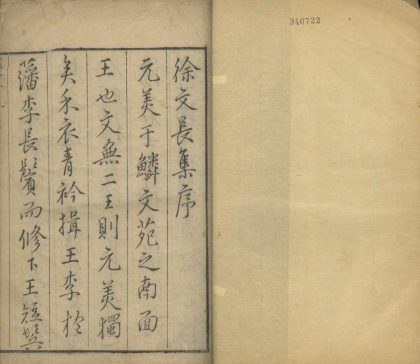 徐文長集序
元美于鱗文苑之南面
王也文無二王則元美獨
矣余衣青衿揖王李於
藩李長鬢而修下王短鬢
340722